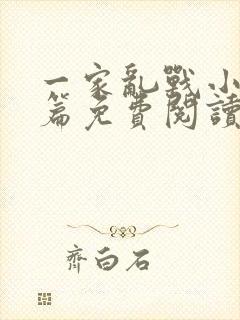 一家亂戰小
篇免費閱讀
齊白石